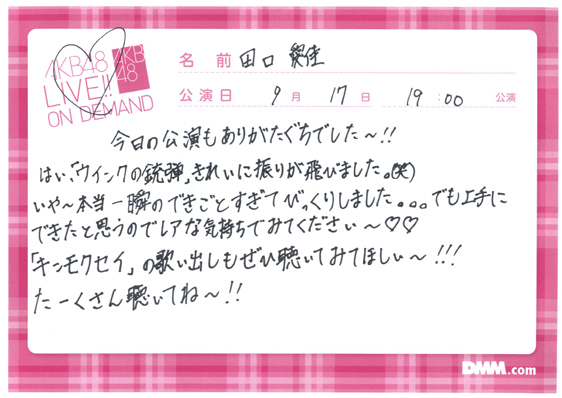 AKB48
LIVE!!
ON DEMAND
AKB
48
名前 田口 愛佳
公演日 9月 17日 19:00 公演
今日の公演もありがたぐちでした〜!!
はい、「ウインクの銃弾」きれいに振りが飛びました。(笑)
いや〜本当一瞬のできごとすぎてびっくりしました。。。でも上手に
できたと思うのでレアな気持ちでみてください〜♡♡
「キンモクセイ」の歌い出しもぜひ聴いてみてほしい〜!!!
たーくさん聴いてね〜!!
DMM.com